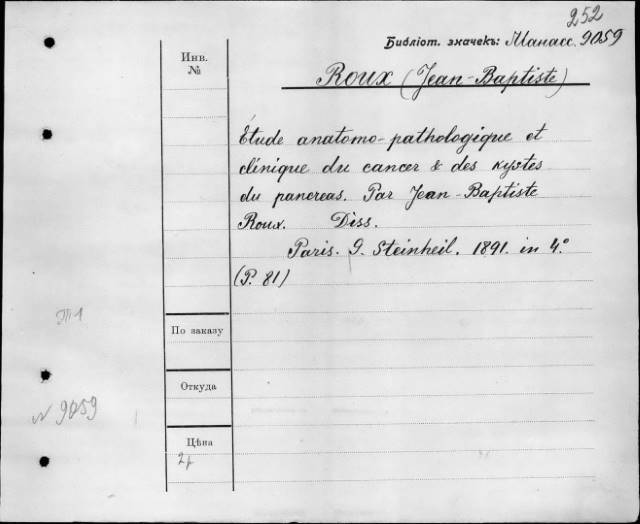 252
Библіот. значекъ: Манасс. 9059
Инв.
№
Roux (Jean-Baptiste)
Étude anatomo-pathologique et
clinique du cancer & des kystes
du pancreas. Par Jean-Baptiste
Roux. Diss.
Paris. G. Steinheil. 1891. in 4°
(P. 81)
По заказу
Откуда
N 9059
Цѣна
2р